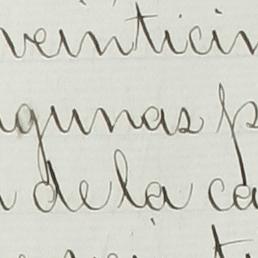 veinticin
gunas p
de la ca